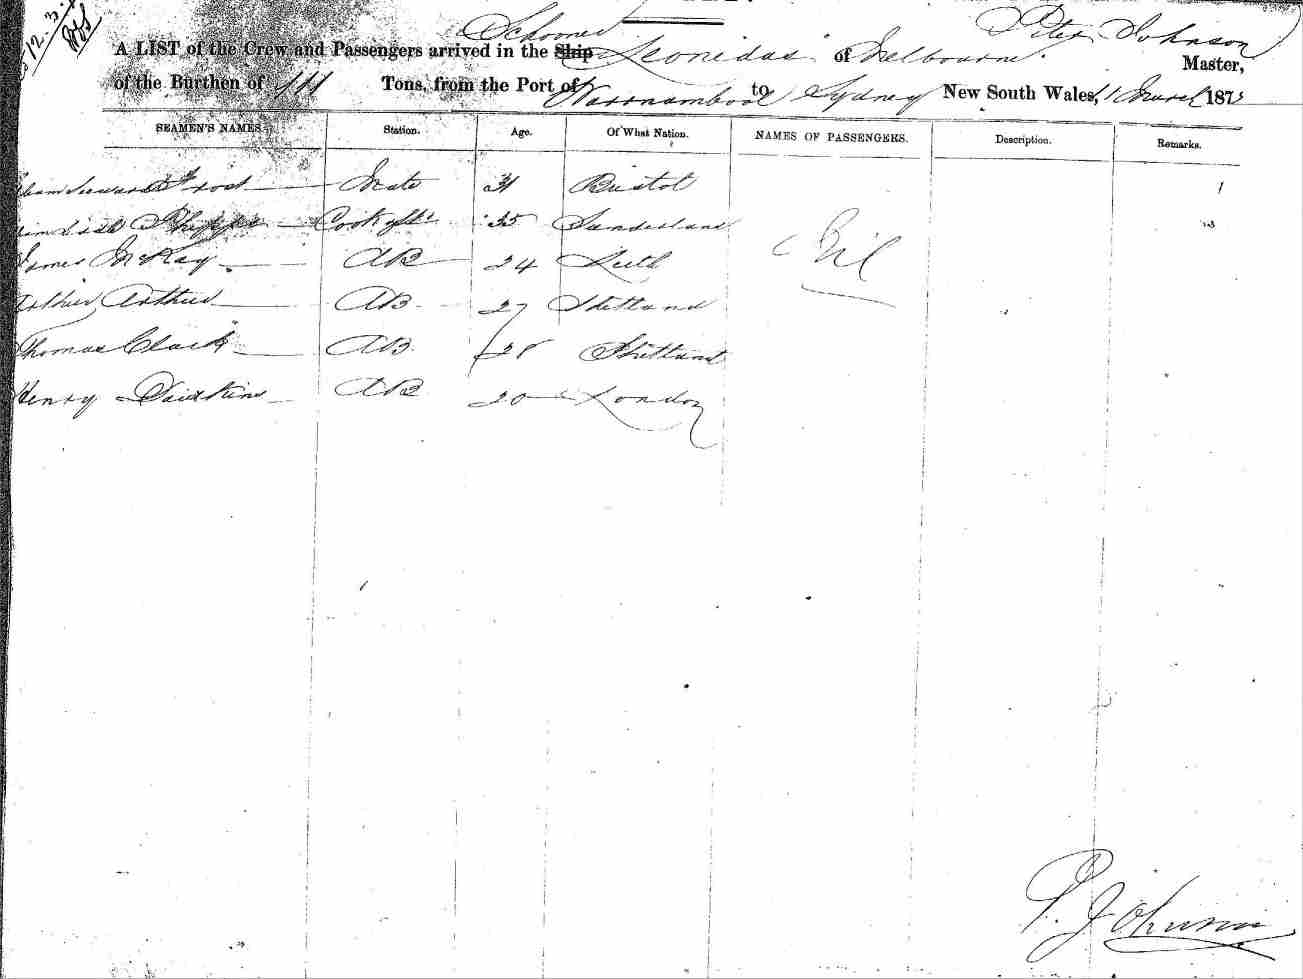 12.3.
Schooner
Peter Johnson
A LIST of the Crew and Passengers arrived in the Ship Leonidas of Melbourne Master,
of the Burthen of 111 Tons, from the Port of Warrnambool to Sydney New South Wales, 11 March 187
SEAMEN'S NAMES. Station. Age. Of What Nation. NAMES OF PASSENGERS. Description. Remarks.
Frost Mate 31 Bristol 1
Cook 35 Sunderland
James McKay AB 24 Leith Nil
Arthur Arthur AB 27 Shetland
Thomas Clark AB 28 Shetland
Henry AB 20 London
P. Johnson